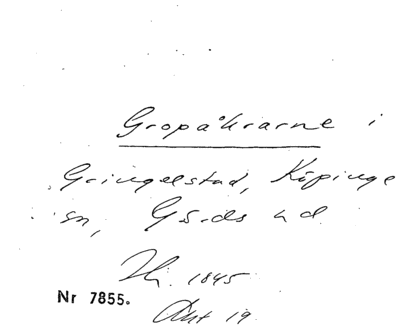 Gropåkrarne i
Gringelstad, Köpinge
sn, Gärds hd.
Hj. 1845
Nr 7855.
Akt 19